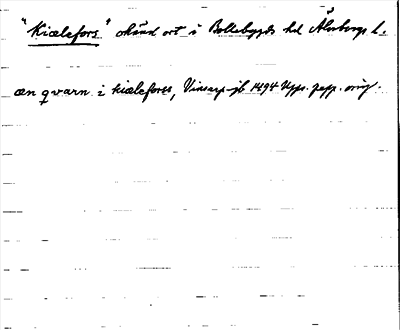 "Kiælefors" okänd ort i Bollebygds hd Älvsborgs l.
æn qvarn i kiælefores, Vinsarp-jb 1494 Upps. papp. orig.